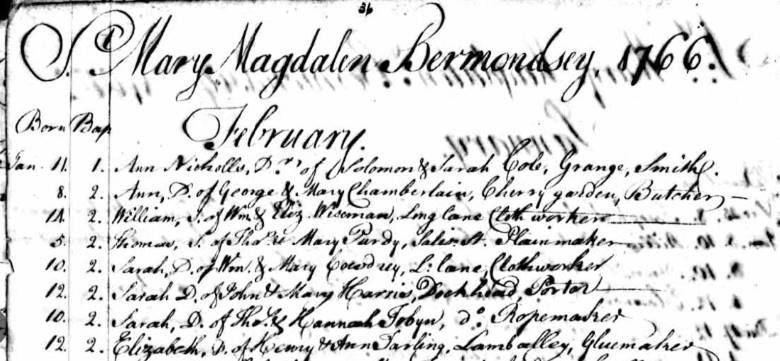 36
St Mary Magdalen Bermondsey, 1766.
Born Bap
February.
Jan. 11. 1. Ann Nicholls, Dr. of Solomon & Sarah Cole, Grange, Smith.
8. 2. Ann, D. of George & Mary Chamberlain, Cherry garden, Butcher
14. 2. William, S. of Wm. & Eliz. Wiseman, Long lane Cloth worker
5. 2. Thomas, S. of Thos. & Mary Purdy, St. Plainmaker
10. 2. Sarah, D. of Wm. & Mary Cowdrey, L: lane, Clothworker
12. 2. Sarah D. of John & Mary Harris, Dockhead Porter
10. 2. Sarah, D. of Tho. & Hannah Tobyn, do. Ropemaker
12. 2. Elizabeth, D. of Henry & Ann Darling, Lamb alley, Gluemaker